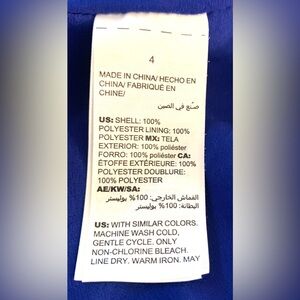 4
MADE IN CHINA/ HECHO EN
CHINA/ FABRIQUÉ EN
CHINE/
صنع في الصين
US: SHELL: 100%
POLYESTER LINING: 100%
POLYESTER MX: TELA
EXTERIOR: 100% poliéster
FORRO: 100% poliéster CA:
ÉTOFFE EXTÉRIEURE: 100%
POLYESTER DOUBLURE:
100% POLYESTER
AE/KW/SA:
القماش الخارجي: 100% بوليستر
البطانة: 100% بوليستر
US: WITH SIMILAR COLORS.
MACHINE WASH COLD,
GENTLE CYCLE. ONLY
NON-CHLORINE BLEACH.
LINE DRY. WARM IRON. MAY